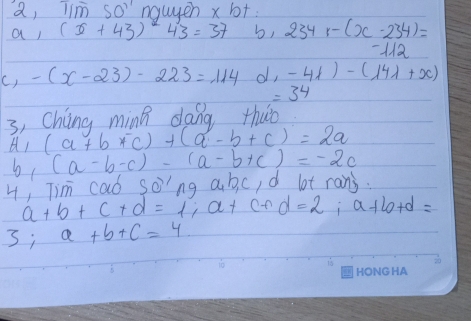 2, Tìm số nguyên x bt:
a, (x + 43) - 43 = 37 b, 234 - (x - 234) =
-112
c, -(x - 23) - 223 = 114 d, -41) - (141 + x)
= 34
3, Chứng minh đẳng thức
A, (a + b + c) + (a - b + c) = 2a
b, (a - b - c) - (a - b + c) = -2c
4, Tìm các số ng a,b,c, d bt rằng:
a + b + c + d = 1; a + c + d = 2; a + b + d =
3; a + b + c = 4
5 10 15 20
HONG HA